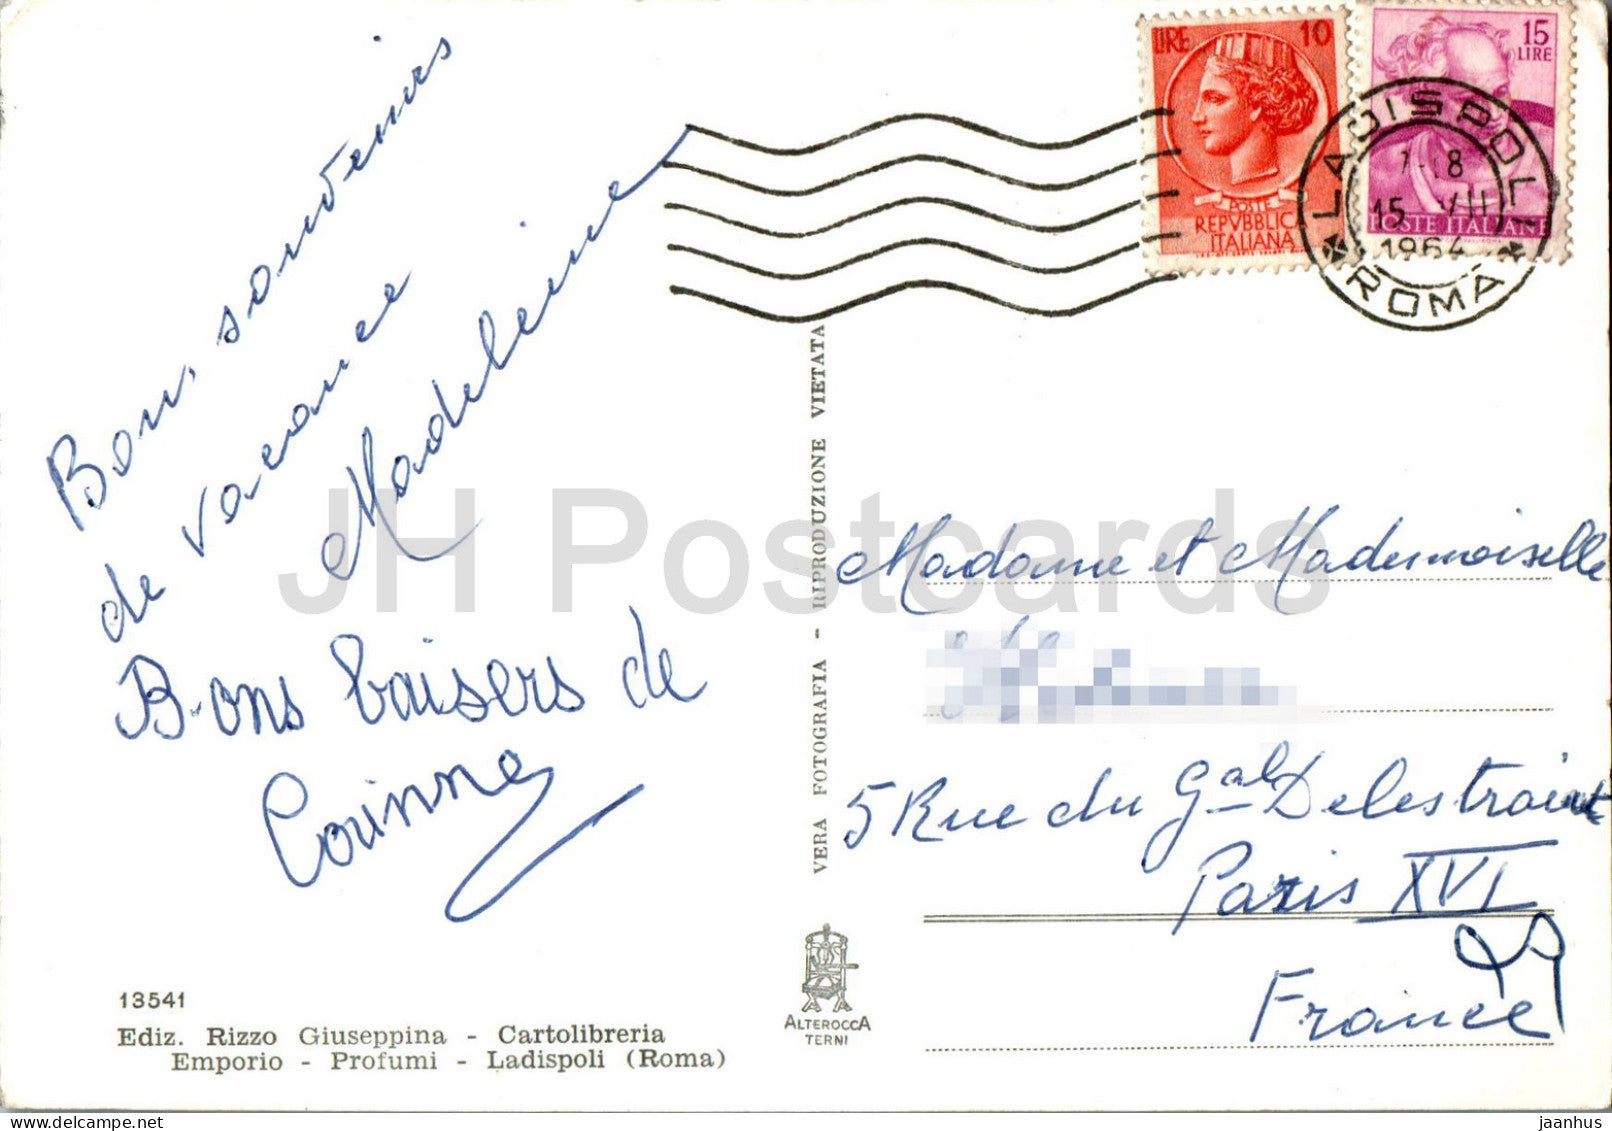 Bon, souvenirs
de vacance
Madeleine
Bons baisers de
Corinne
13541
Ediz. Rizzo Giuseppina - Cartolibreria
Emporio - Profumi - Ladispoli (Roma)
VERA FOTOGRAFIA - RIPRODUZIONE VIETATA
ALTEROCCA
TERNI
LIRE 10
POSTE
REPVBBLICA
ITALIANA
15
LIRE
POSTE ITALIANE
LADISPOLI
15 VII
1964
ROMA
Madame et Mademoiselle
5 Rue du Gal Delestraint
Paris XVI
France
JH Postcards
jaanhus